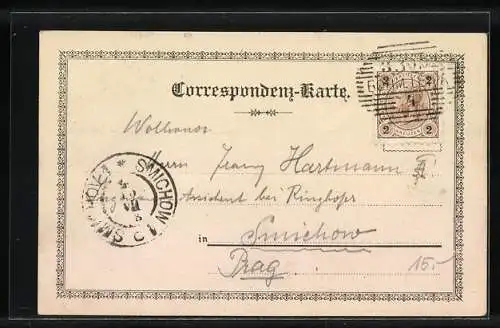 2 2
Correspondenz-Karte.
2 2
Herrn Franz Hartmann
SMICHOW
Assistent bei Ringhofer
in Smichow
Prag.
15.-